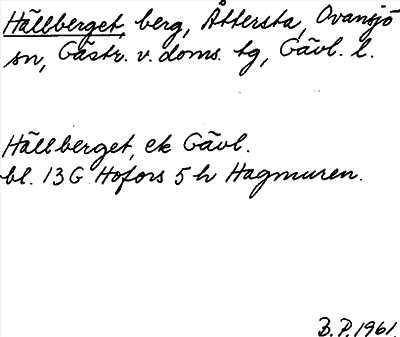 Hällberget, berg, Åttersta, Ovansjö
sn, Gästr. v. doms. tg, Gävl. l.
Hällberget, ek Gävl.
bl. 13 G Hofors 5 h Hagmuren.
B.P. 1961.